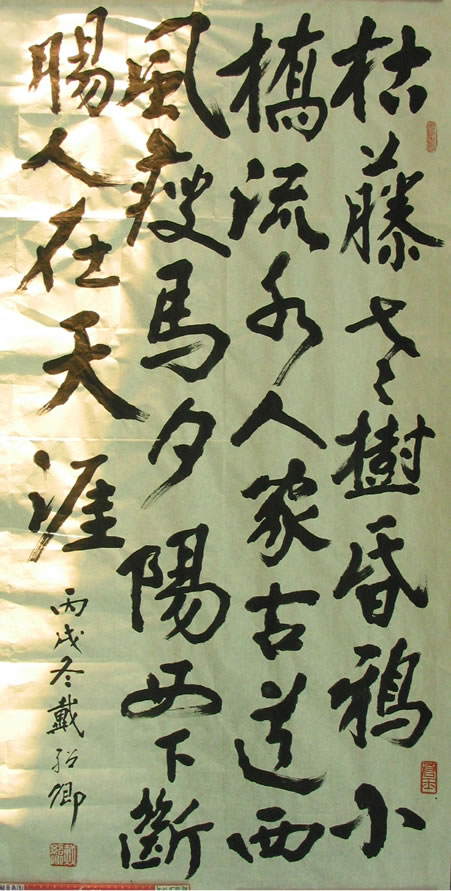 枯藤老樹昏鴉小
橋流水人家古道西
風瘦馬夕陽西下斷
腸人在天涯
丙戌冬戴紹卿